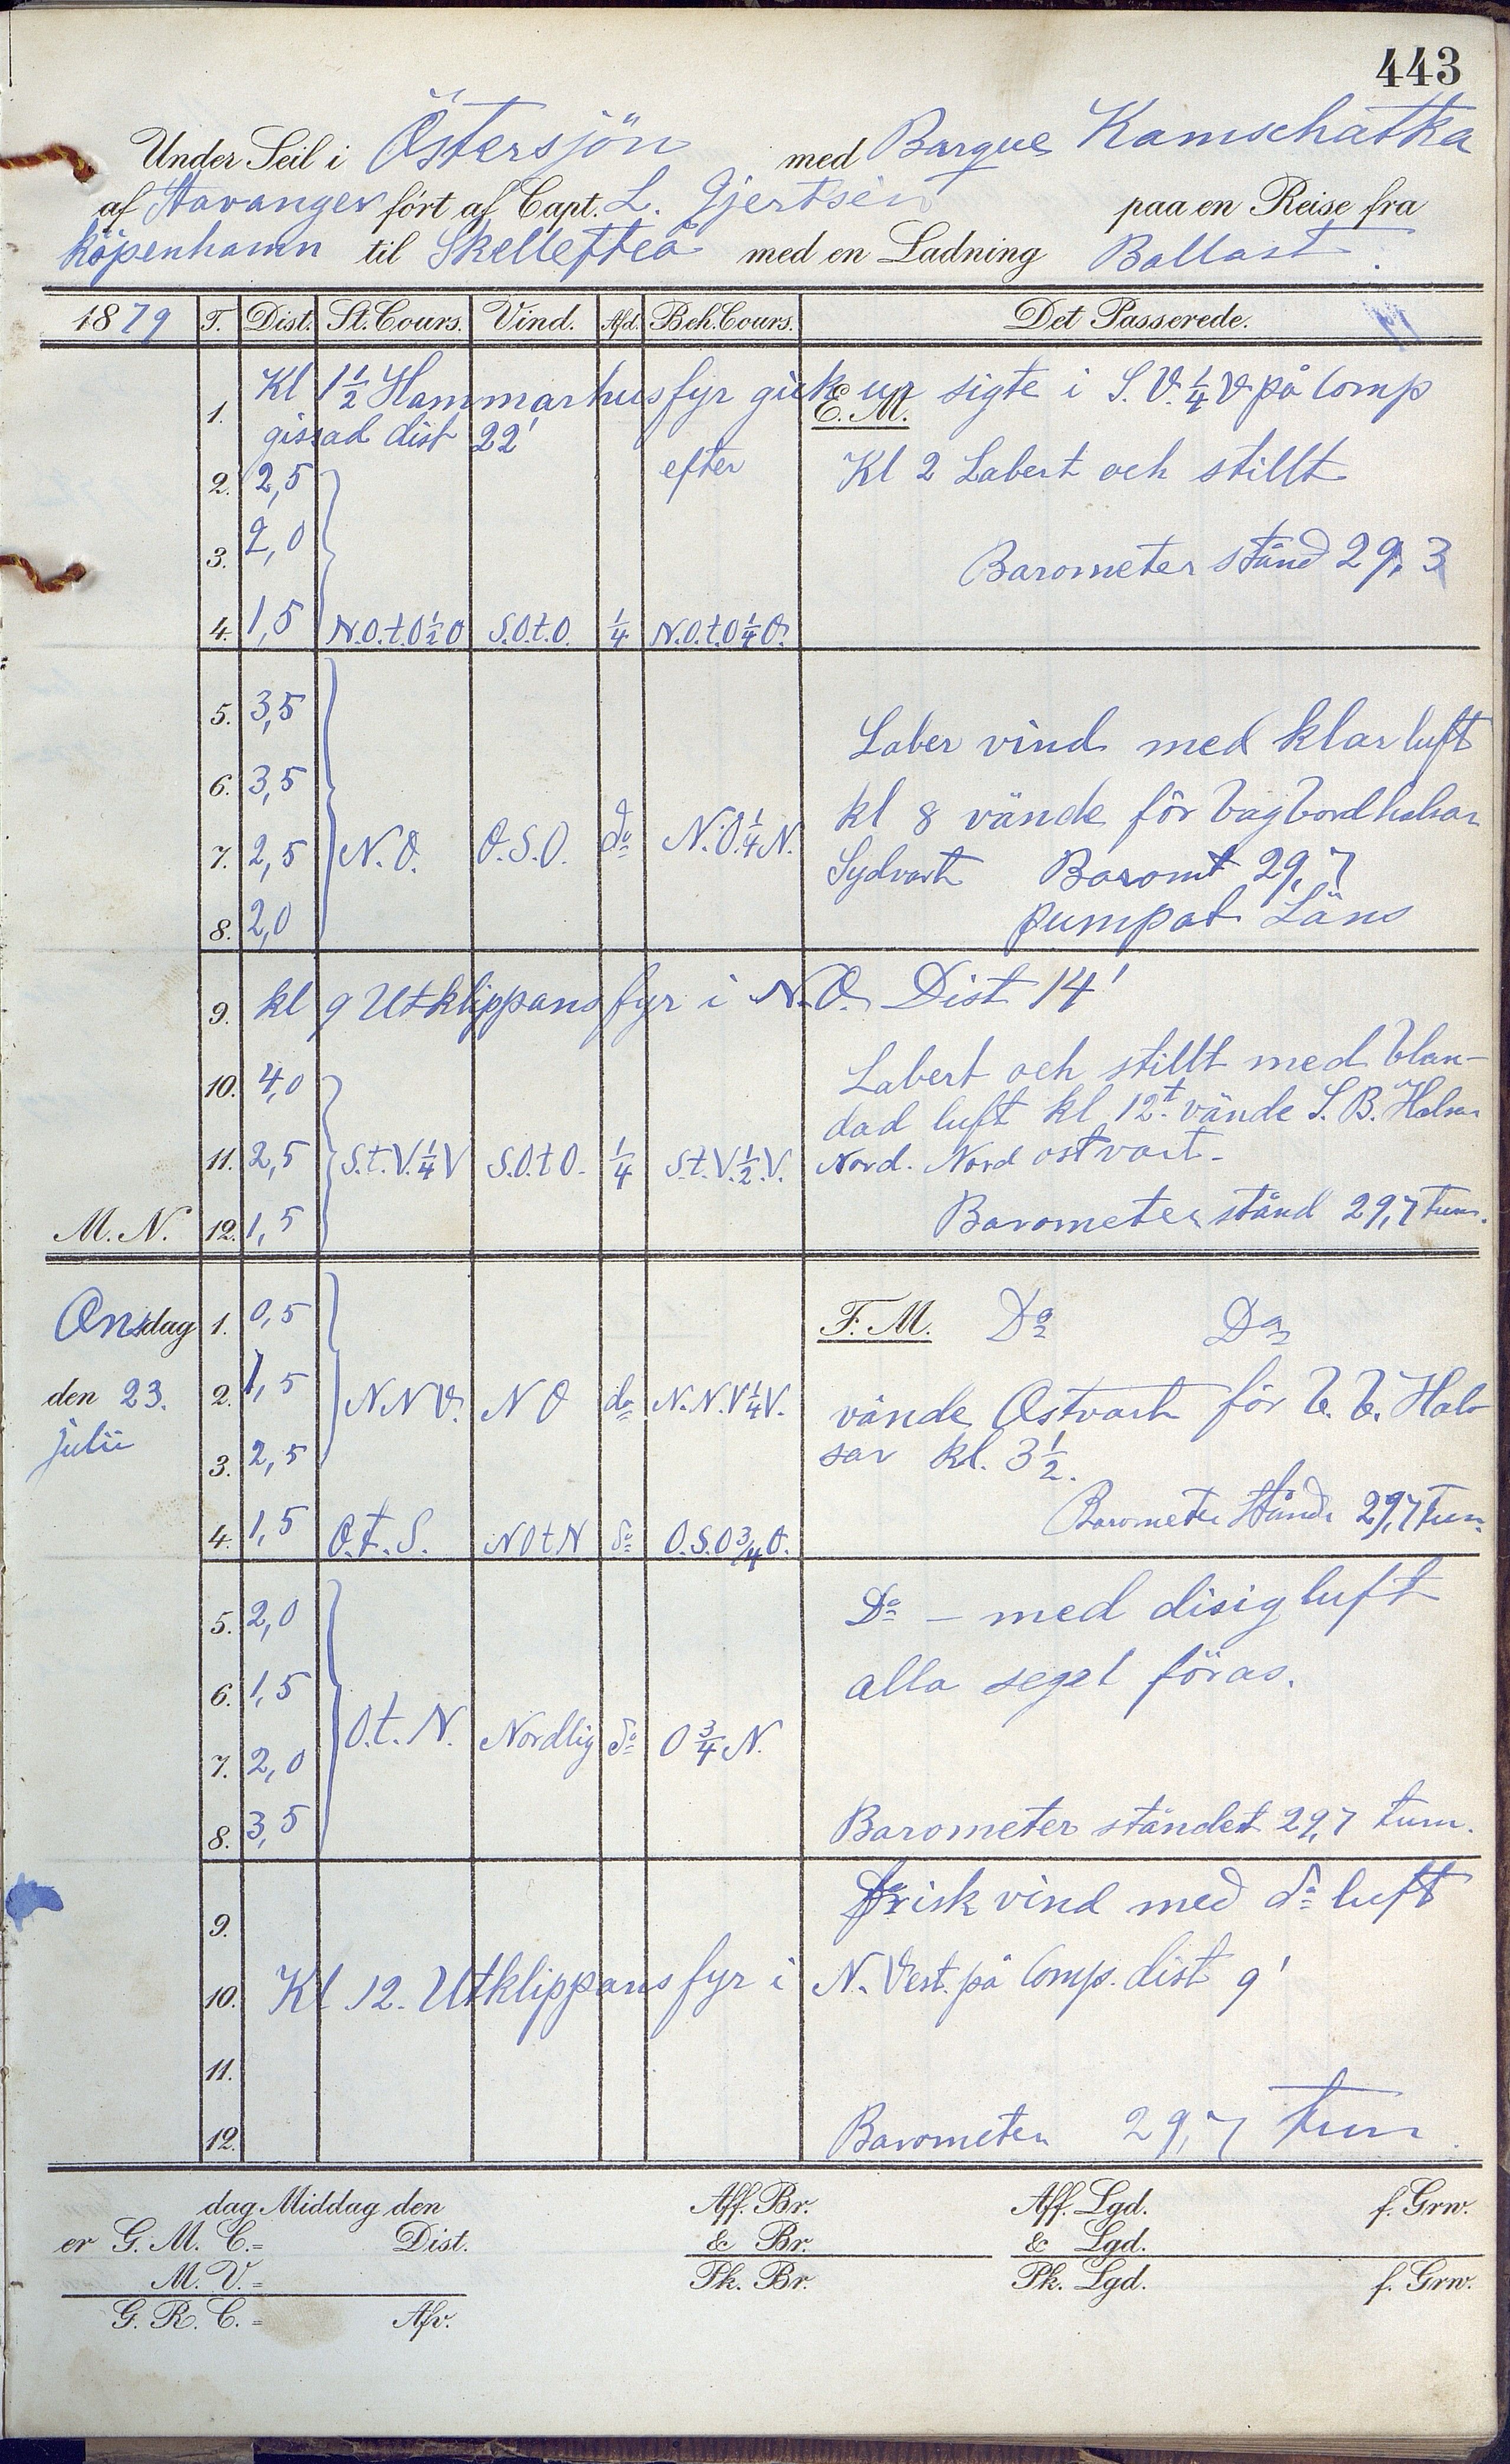 443
Under Seil i Östersjön med Barque Kamschatka
af Stavanger fört af Capt. L. Gjertsen paa en Reise fra
köpenhamn til Skellefteå med en Ladning Ballast.
1879 T. Dist. St. Cours. Vind. Afd. Beh. Cours. Det Passerede.
Kl 1 1/2 Hammarhus fyr gick ur sigte i S.V. 1/4 V på Comp
1. gissad dist 22' E.M.
2. 2,5 efter Kl 2 Labert och stillt
3. 2,0 Barometer stånd 29,3
4. 1,5 N.O.t.O 1/2 O S.O.t.O. 1/4 N.O.t.O 1/4 O.
5. 3,5 Laber vind med klar luft
6. 3,5 kl 8 vände för bagbord halsar
7. 2,5 N.O. O.S.O. do N.O. 1/4 N. Sydvart Baromt 29,7
8. 2,0 pumpat Läns
9. kl 9 Utklippans fyr i N.O. Dist 14'
10. 4,0 Labert och stillt med blan-
dad luft kl 12t vände S.B. Halsar
11. 2,5 S.t.V. 1/4 V S.O.t O. 1/4 S.t.V. 1/2 V. Nord. Nord ostvart-
M.N. 12. 1,5 Barometer stånd 29,7 tum.
Onsdag 1. 0,5 F.M. Do Do
den 23. 2. 1,5 N N V. N O do N.N.V 1/4 V. vände Ostvart för b.b. Hal-
julii 3. 2,5 sar kl. 3 1/2.
Barometer stånd 29,7 tum.
4. 1,5 O.t.S. N O t N do O.S.O 3/4 O.
5. 2,0 Do - med disig luft
6. 1,5 alla segel föras.
7. 2,0 O.t.N. Nordlig do O 3/4 N.
8. 3,5 Barometer ståndet 29,7 tum.
frisk vind med do luft
9.
10. Kl 12. Utklippans fyr i N. Vest. på Comp. dist 9'
11.
12. Barometer 29,7 tum.
dag Middag den Aff. Br. Aff. Lgd. f. Grw.
er G. M. C.= Dist. & Br. & Lgd.
M. V.= Pk. Br. Pk. Lgd. f. Grw.
G. R. C.= Afv.